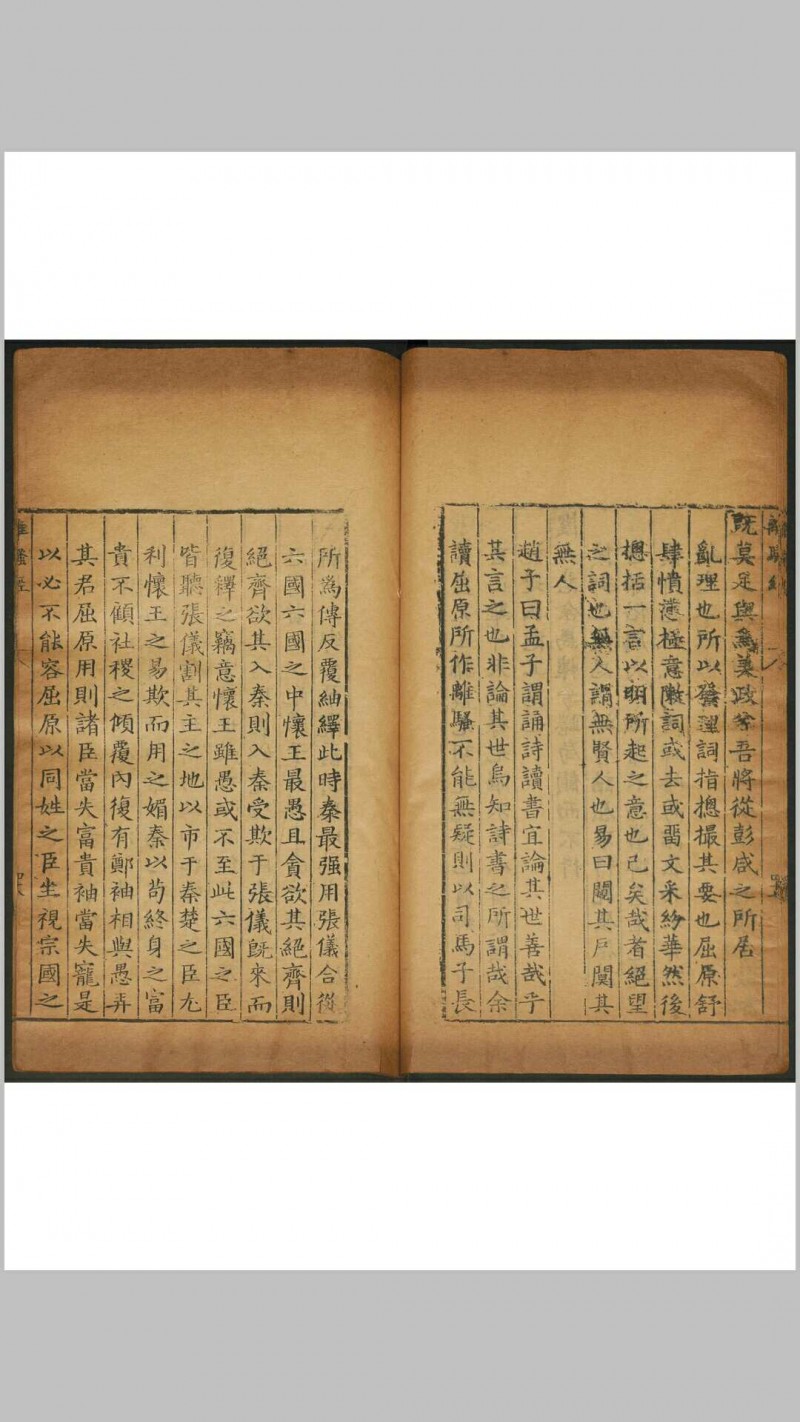 離騷經
既莫足與爲美政兮吾將從彭咸之所居
亂理也所以發理詞指摠撮其要也屈原舒
肆憤懣極意敶詞或去或畱文采紛華然後
摠括一言以明所起之意也已矣哉者絕望
之詞也無人謂無賢人也易曰闚其戶闃其
無人
趙子曰孟子謂誦詩讀書宜論其世善哉乎
其言之也非論其世烏知詩書之所謂哉余
讀屈原所作離騷不能無疑則以司馬子長
所爲傳反覆紬繹此時秦最强用張儀合從
六國六國之中懷王最愚且貪欲其絕齊則
絕齊欲其入秦則入秦受欺于張儀旣來而
復釋之竊意懷王雖愚或不至此六國之臣
皆聽張儀割其主之地以市于秦楚之臣尤
利懷王之易欺而用之媚秦以苟終身之富
貴不顧社稷之傾覆內復有鄭袖相與愚弄
其君屈原用則諸臣當失富貴袖當失寵是
以必不能容屈原以同姓之臣坐視宗國之
離騷經